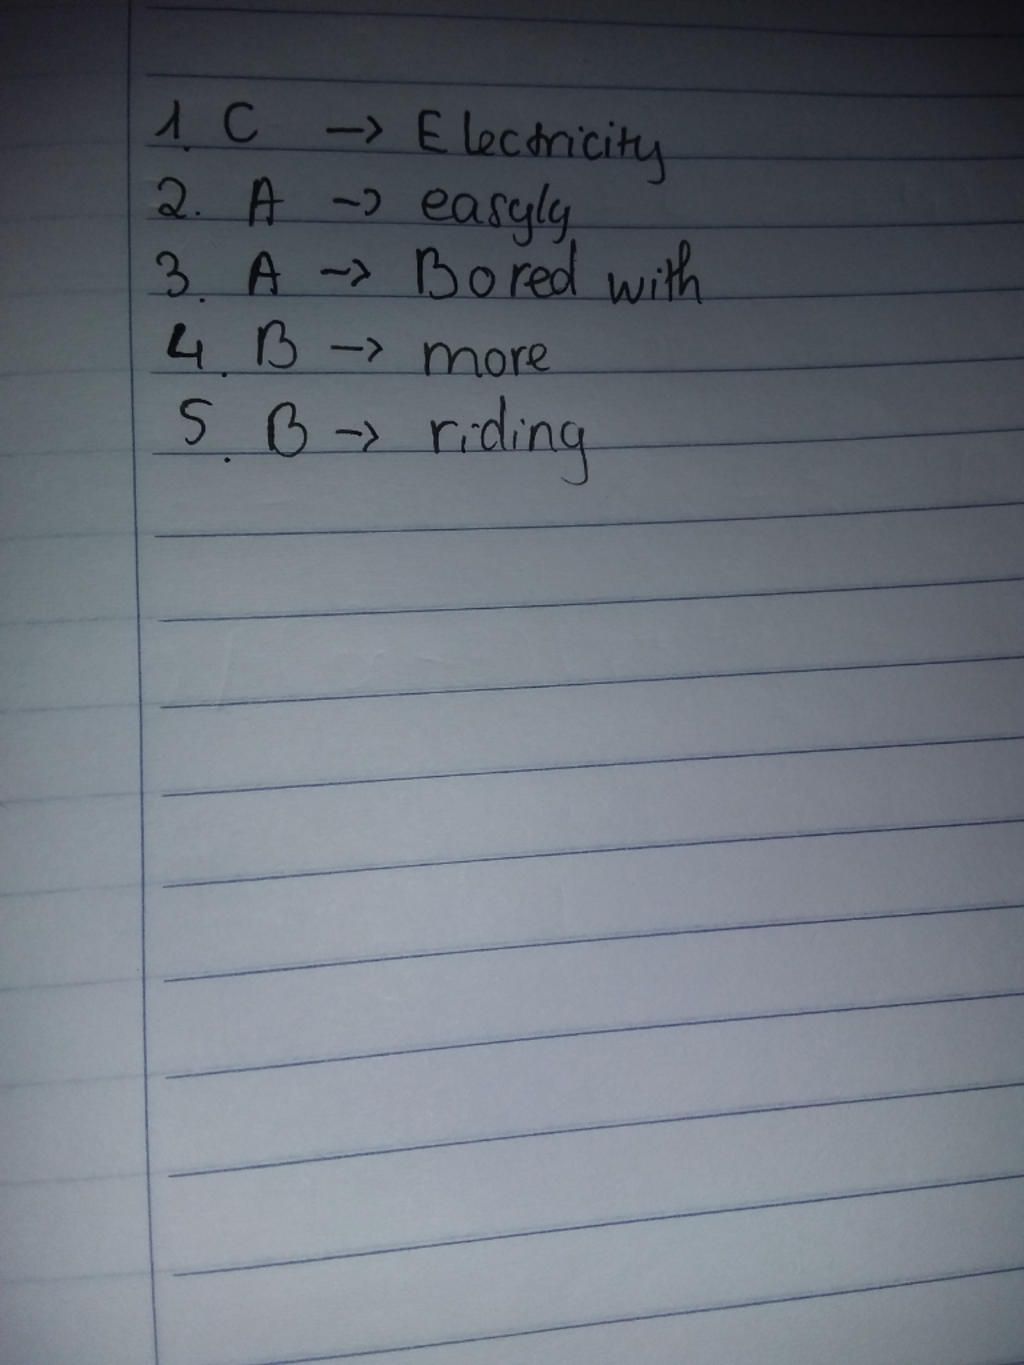 1. C → Electricity
2. A → easyly
3. A → Bored with
4. B → more
5. B → riding